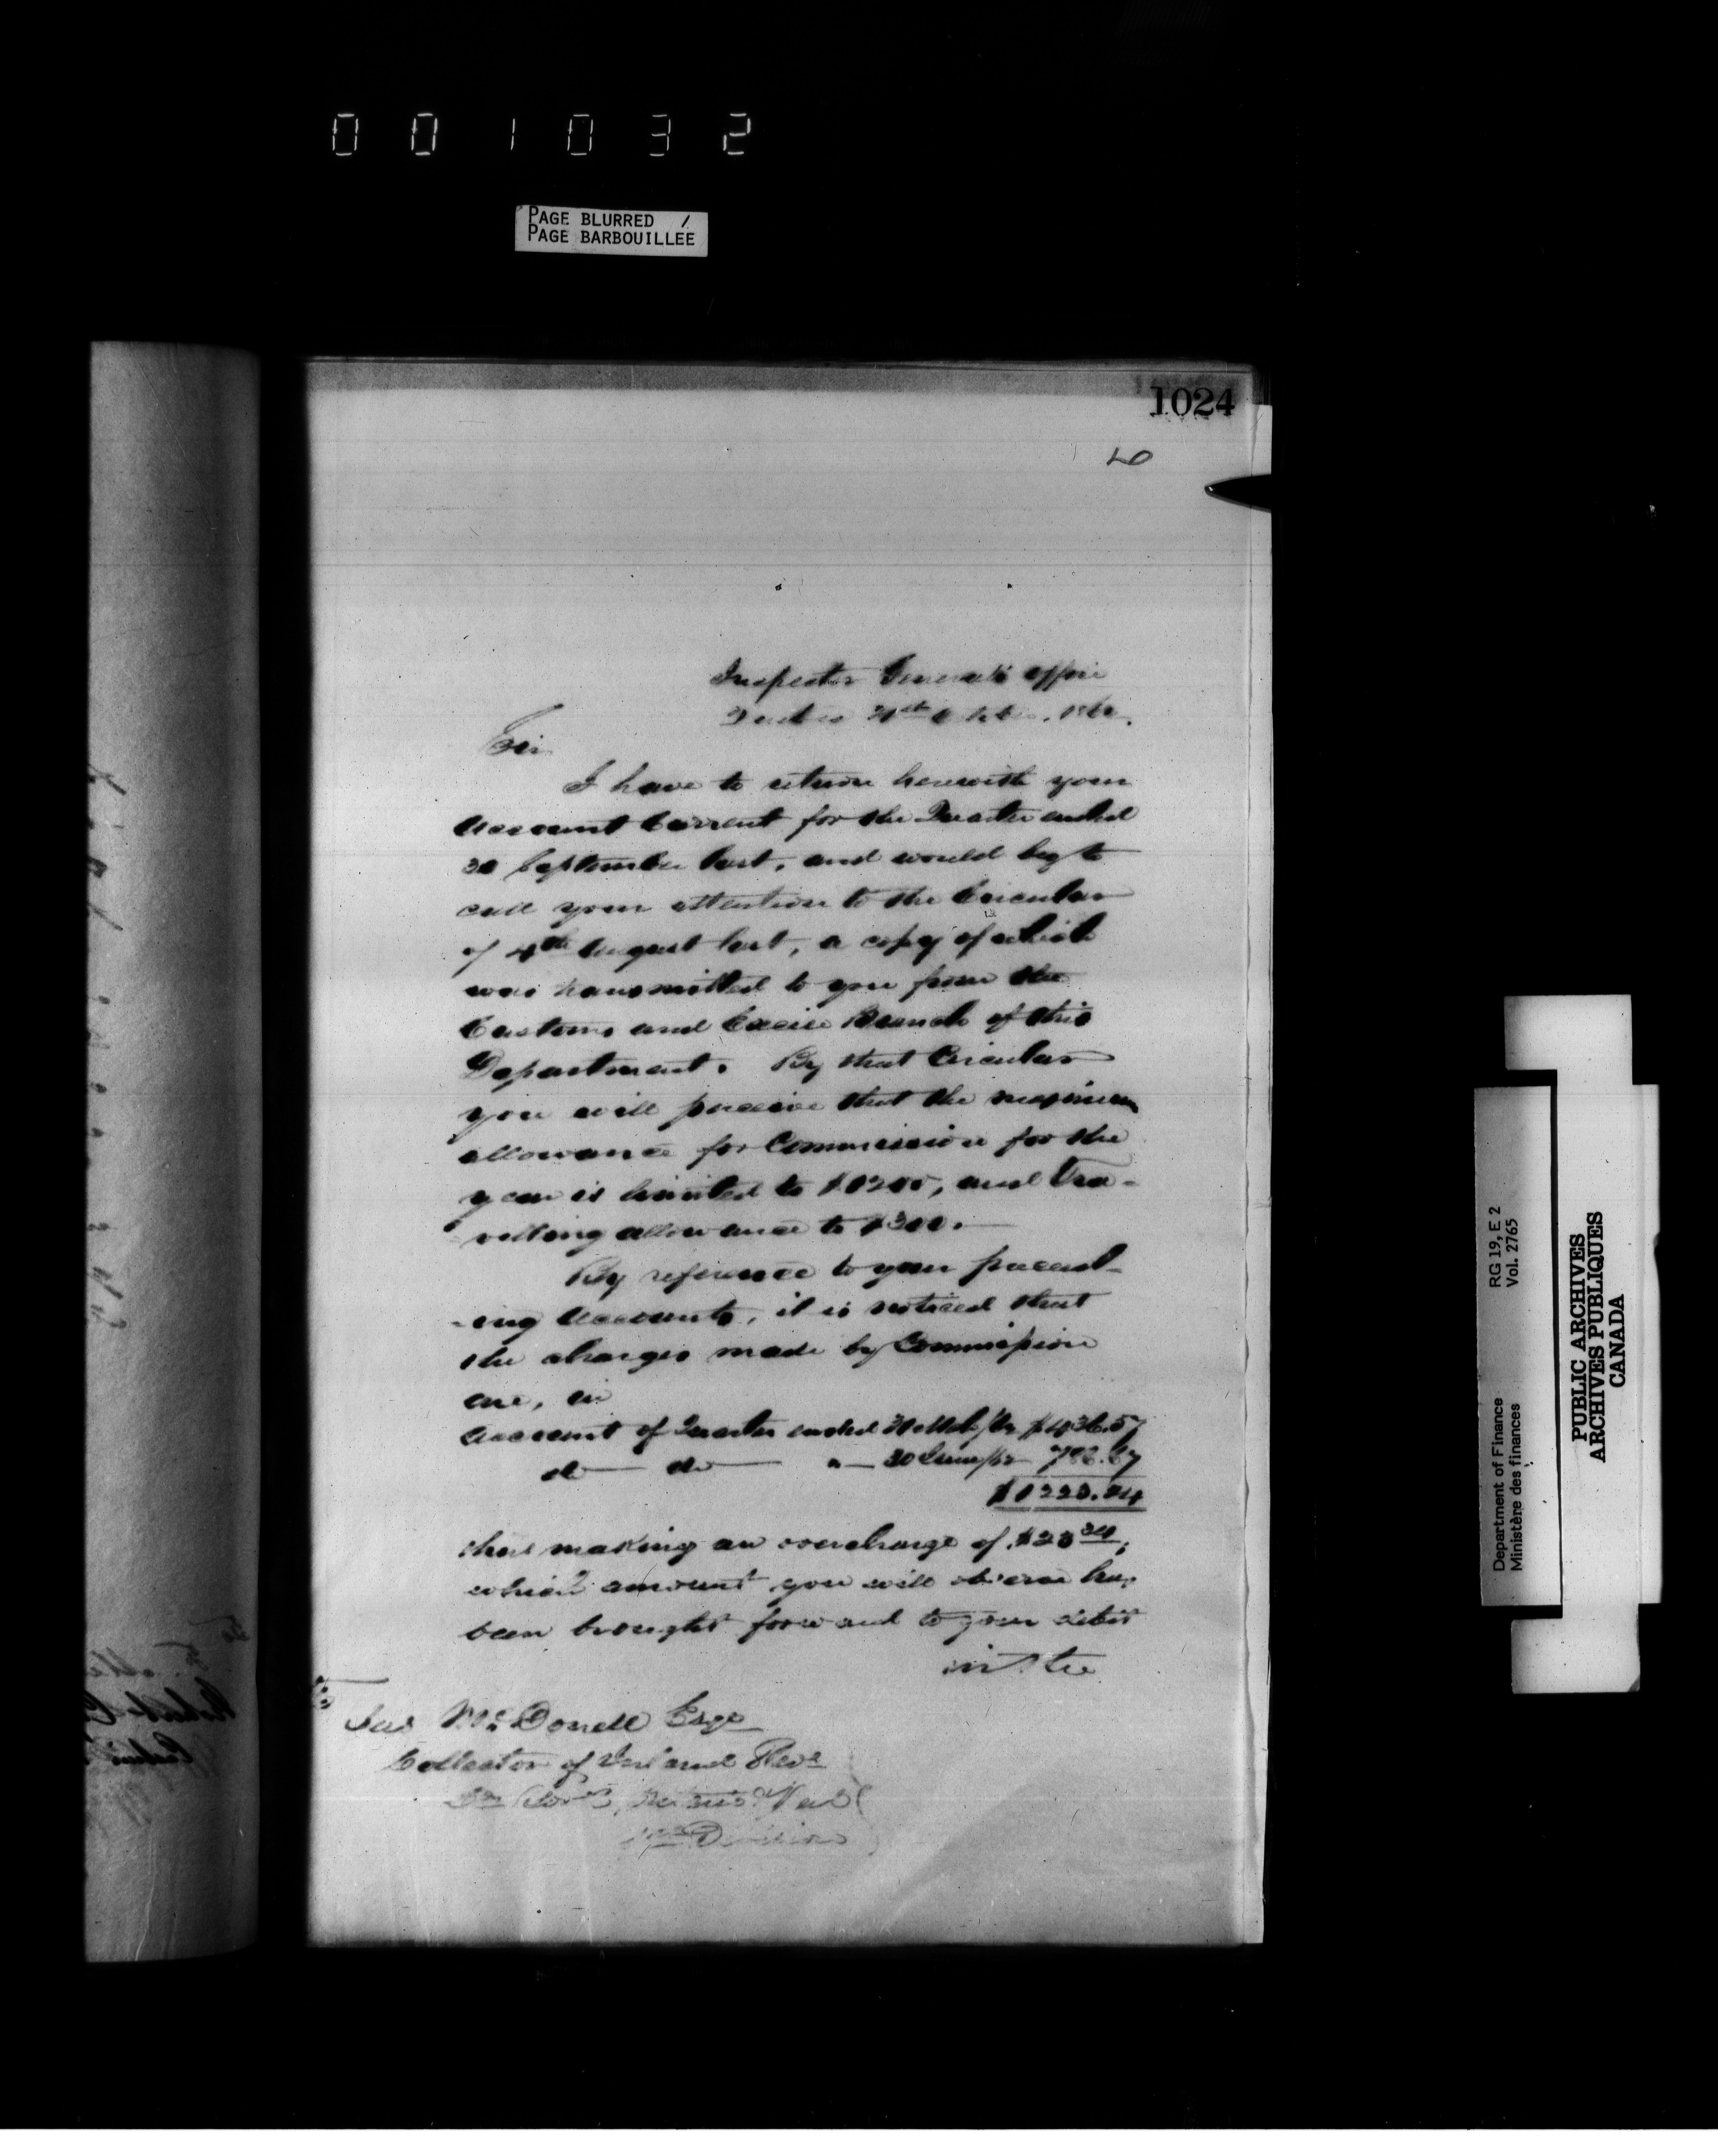 001032
PAGE BLURRED /
PAGE BARBOUILLEE
1024
Inspector General's Office
Quebec 31st October 1860.
Sir
I have to return herewith your
Account Current for the Quarter ended
30 September last, and would beg to
call your attention to the Circular
of 4th August last, a copy of which
was transmitted to you from the
Customs and Excise Branch of this
Department. By that Circular
you will perceive that the maximum
allowance for Commission for the
year is limited to $1200, and Tra-
velling allowance to $300.
By reference to your preced-
-ing Accounts, it is noticed that
the charges made by Commission
are, in
Account of Quarter ended 31 Mch/60 $436.57
do do " 30 June/60 786.67
$1223.24
thus making an overcharge of $23 24;
which amount you will observe has
been brought forward to your debit
in the
Jas McDonell Esqe
Collector of Inland Reve
Division
RG 19, E 2
Vol. 2765
Department of Finance
Ministère des finances
PUBLIC ARCHIVES
ARCHIVES PUBLIQUES
CANADA